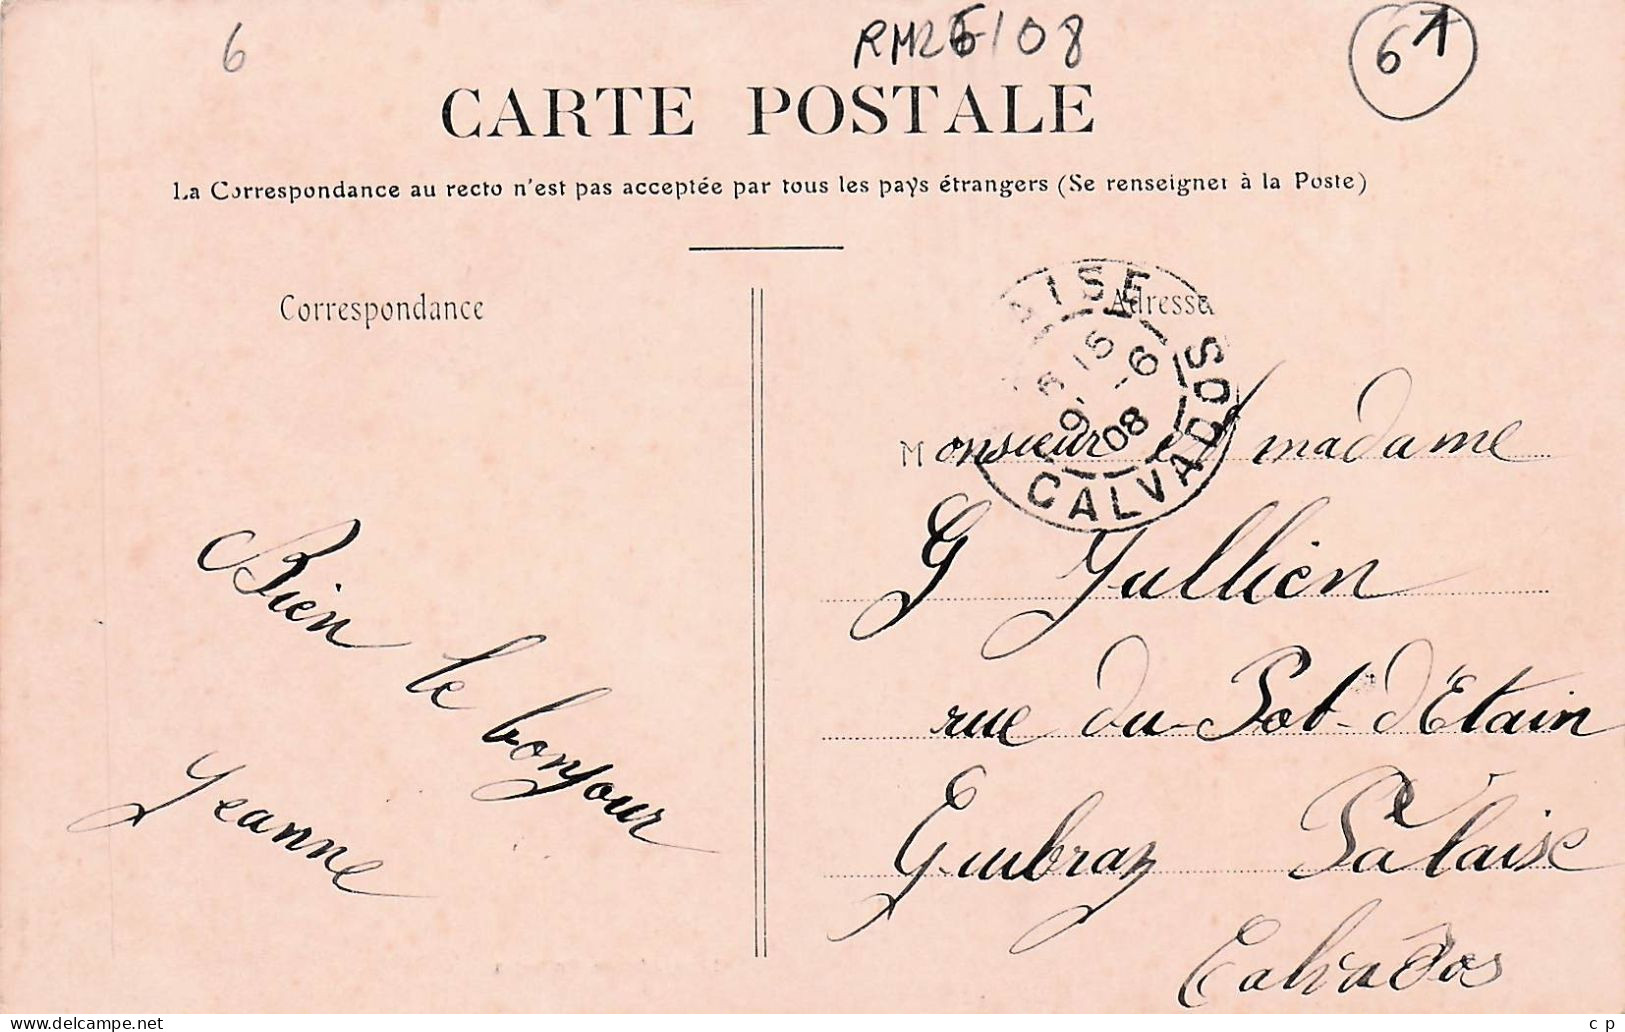 6
RM26/08
61
CARTE POSTALE
La Correspondance au recto n'est pas acceptée par tous les pays étrangers (Se renseigner à la Poste)
Correspondance
Adresse
AISE
15
9 -6
08
CALVADOS
Bien le bonjour
Jeanne
Monsieur et madame
G Jullien
rue du Pot-d'Etain
Guibray Falaise
Calvados
www.delcampe.net
c p